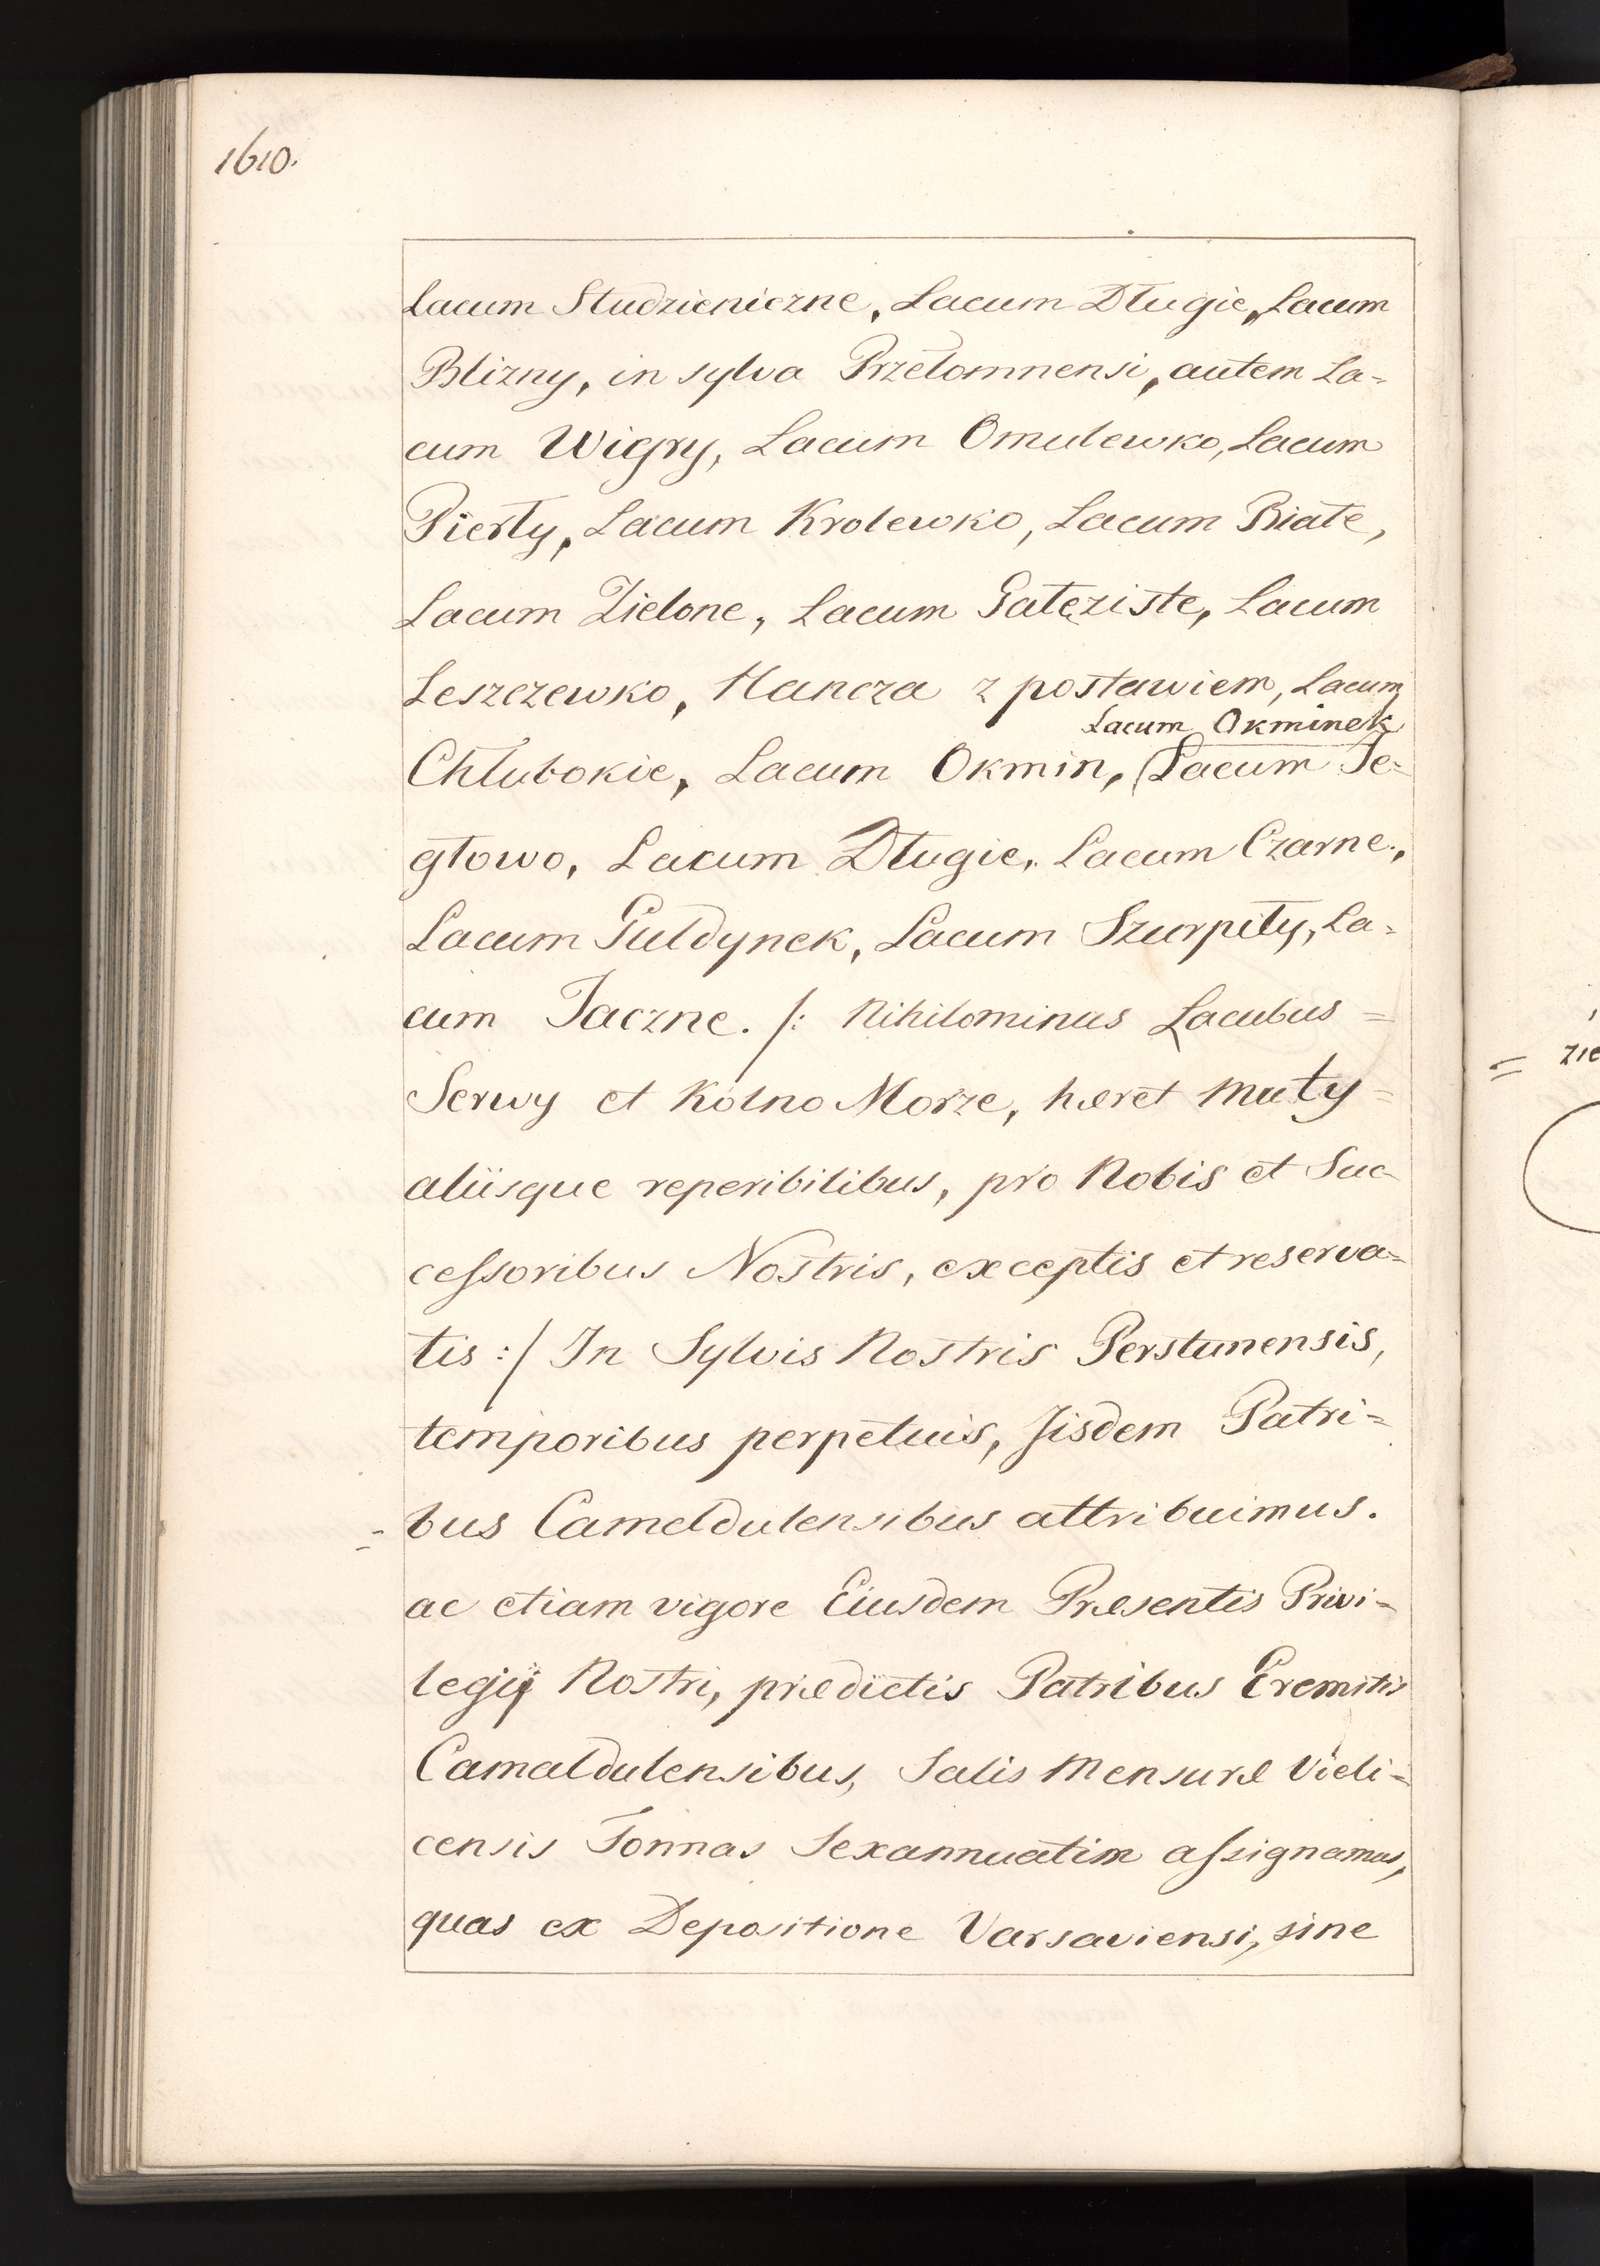 1610.
Lacum Studzieniczne, Lacum Długie, Lacum
Blizny, in sylva Przełomnensi, autem La=
cum Wigry, Lacum Omulewko, Lacum
Pierty, Lacum Krolewko, Lacum Białe,
Lacum Zielone, Lacum Gałęziste, Lacum
Leszczewko, Hancza z postawiem, Lacum
Lacum Okminek
Chłubokie, Lacum Okmin, (Lacum Je=
głowo, Lacum Długie, Lacum Czarne,
Lacum Guldynek, Lacum Szurpiły, La=
cum Jaczne. /: Nihilominus Lacubus =
Serwy et Kolno Morze, hæret muły =
aliisque reperibilibus, pro Nobis et Suc=
cessoribus Nostris, exceptis et reserva=
tis :/ In Sylvis Nostris Perstunensis,
temporibus perpetuis, Iisdem Patri=
= bus Cameldulensibus attribuimus.
ac etiam vigore Eiusdem Præsentis Privi=
legij Nostri, prædictis Patribus Eremitis
Camaldulensibus, Salis Mensuræ Vieli=
censis Tonnas Sexannuatim assignamus,
quas ex Depositione Varsaviensi, sine
= zie